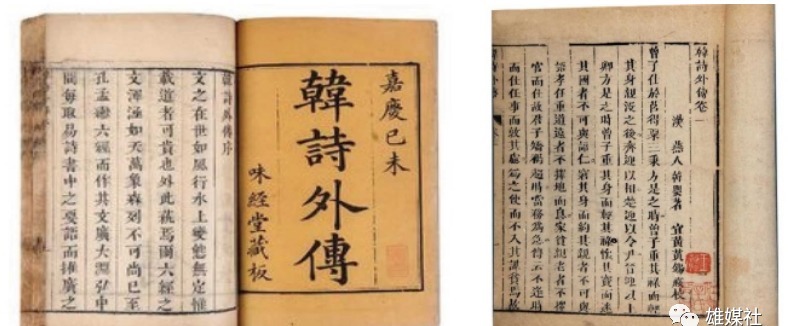 嘉慶己未
韓詩外傳
味經堂藏板
韓詩外傳序
文之在世如風行水上變態無定惟
載道者可貴也外此蔑焉爾六經之
文渾涵如天萬象森列不可尚已至
孔孟遵六經而作其文廣大淵弘中
間每取易詩書中之要語而推廣之
韓詩外傳卷一
漢 燕人韓嬰著 宜黃黃錫 校
曾子仕於莒得粟三秉方是之時曾子重其祿而輕
其身親沒之後齊迎以相楚迎以令尹晉迎以上
卿方是之時曾子重其身而輕其祿懷其寶而迷
其國者不可與語仁窘其身而約其親者不可與
語孝任重道遠者不擇地而息家貧親老者不擇
官而仕故君子橋褐趨時當務為急傳云不逢時
而仕任事而敦其慮為之使而不入其謀貧焉故
雄媒社